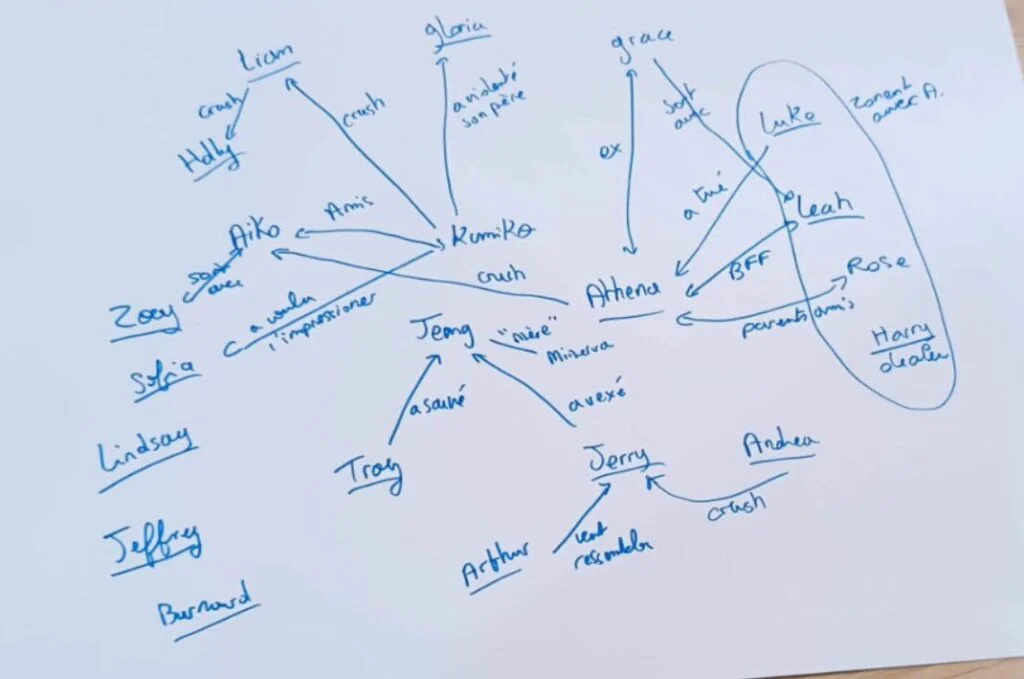 gloria
grace
Liam
crush
crush
a violenté
son père
sort
avec
zonent
avec A.
Luke
Holly
ex
a tué
Amis
Leah
Aiko
Kumiko
BFF
Rose
sort
avec
crush
Athena
Zoey
a voulu
l'impressionner
parents amis
Jenny
"mère"
Minerva
Harry
dealer
Sofia
a sauvé
a vexé
Lindsay
Troy
Jerry
Andrea
crush
Jeffrey
Arthur
veut
ressembler
Burnward